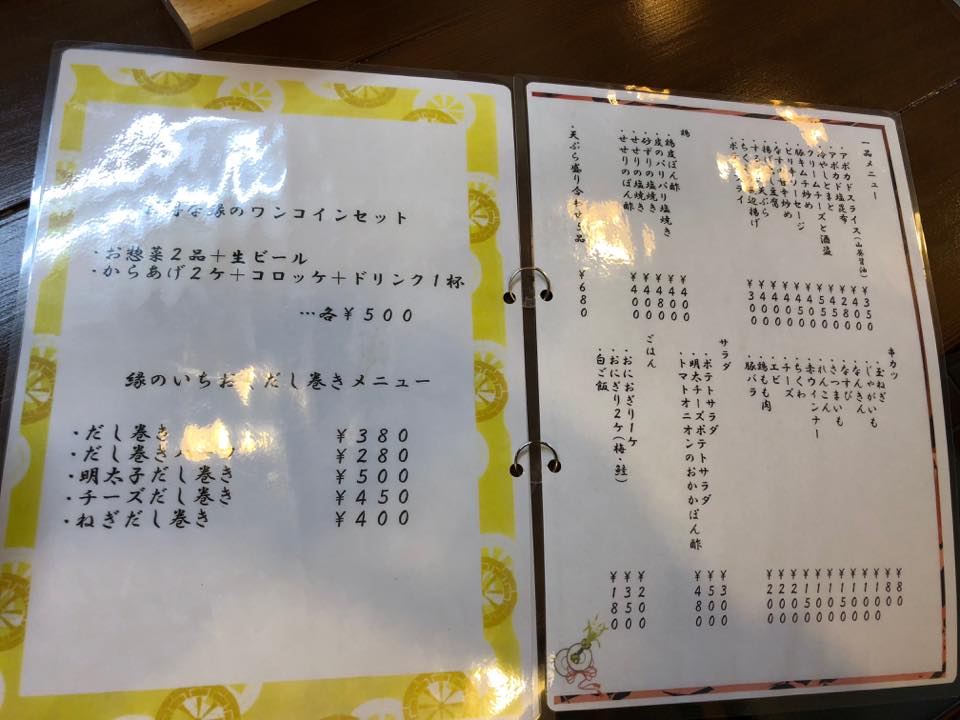 縁のワンコインセット
・お惣菜2品+生ビール
・からあげ2ケ+コロッケ+ドリンク1杯
…各¥500
縁のいちお だし巻きメニュー
・だし巻き ¥380
・だし巻き ¥280
・明太子だし巻き ¥500
・チーズだし巻き ¥450
・ねぎだし巻き ¥400
一品メニュー
・アボカドスライス(山葵醤油) ¥350
・アボカド塩昆布 ¥400
・冷やしとまと ¥280
・クリームチーズと酒盗 ¥550
・豚キムチ炒め ¥450
・ピリキリソーセージ ¥400
・なすの甘辛炒め
・揚げだし豆腐
・ちく 天ぷら
・する 辺揚げ
・ポテ ライ ¥300
鶏
・鶏皮ぽん酢 ¥400
・皮のパリパリ塩焼き ¥400
・砂ずりの塩焼き ¥480
・せせりの塩焼き ¥400
・せせりのぽん酢 ¥400
・天ぷら盛り合わせ5品 ¥680
串カツ
・玉ねぎ ¥80
・じゃがいも ¥80
・なんきん
・なすび
・さつまいも
・れんこん
・赤ウインナー
・ちくわ
・チーズ
・エビ
・鶏もも肉
・豚バラ
サラダ
・ポテトサラダ ¥300
・明太チーズポテトサラダ ¥500
・トマトオニオンのおかかぽん酢 ¥480
ごはん
・おにおぎり1ケ ¥200
・おにぎり2ケ(梅・鮭) ¥350
・白ご飯 ¥180